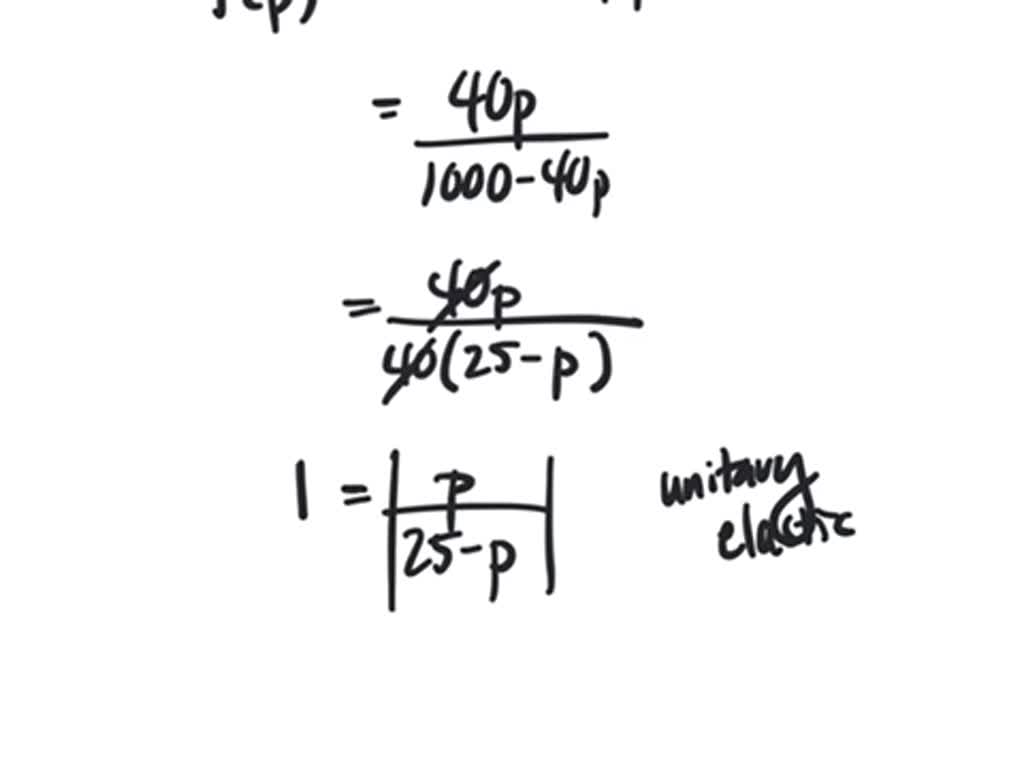 = 40p
1000-40p
= 40p
40(25-p)
1 = | p
25-p |
unitary
elastic